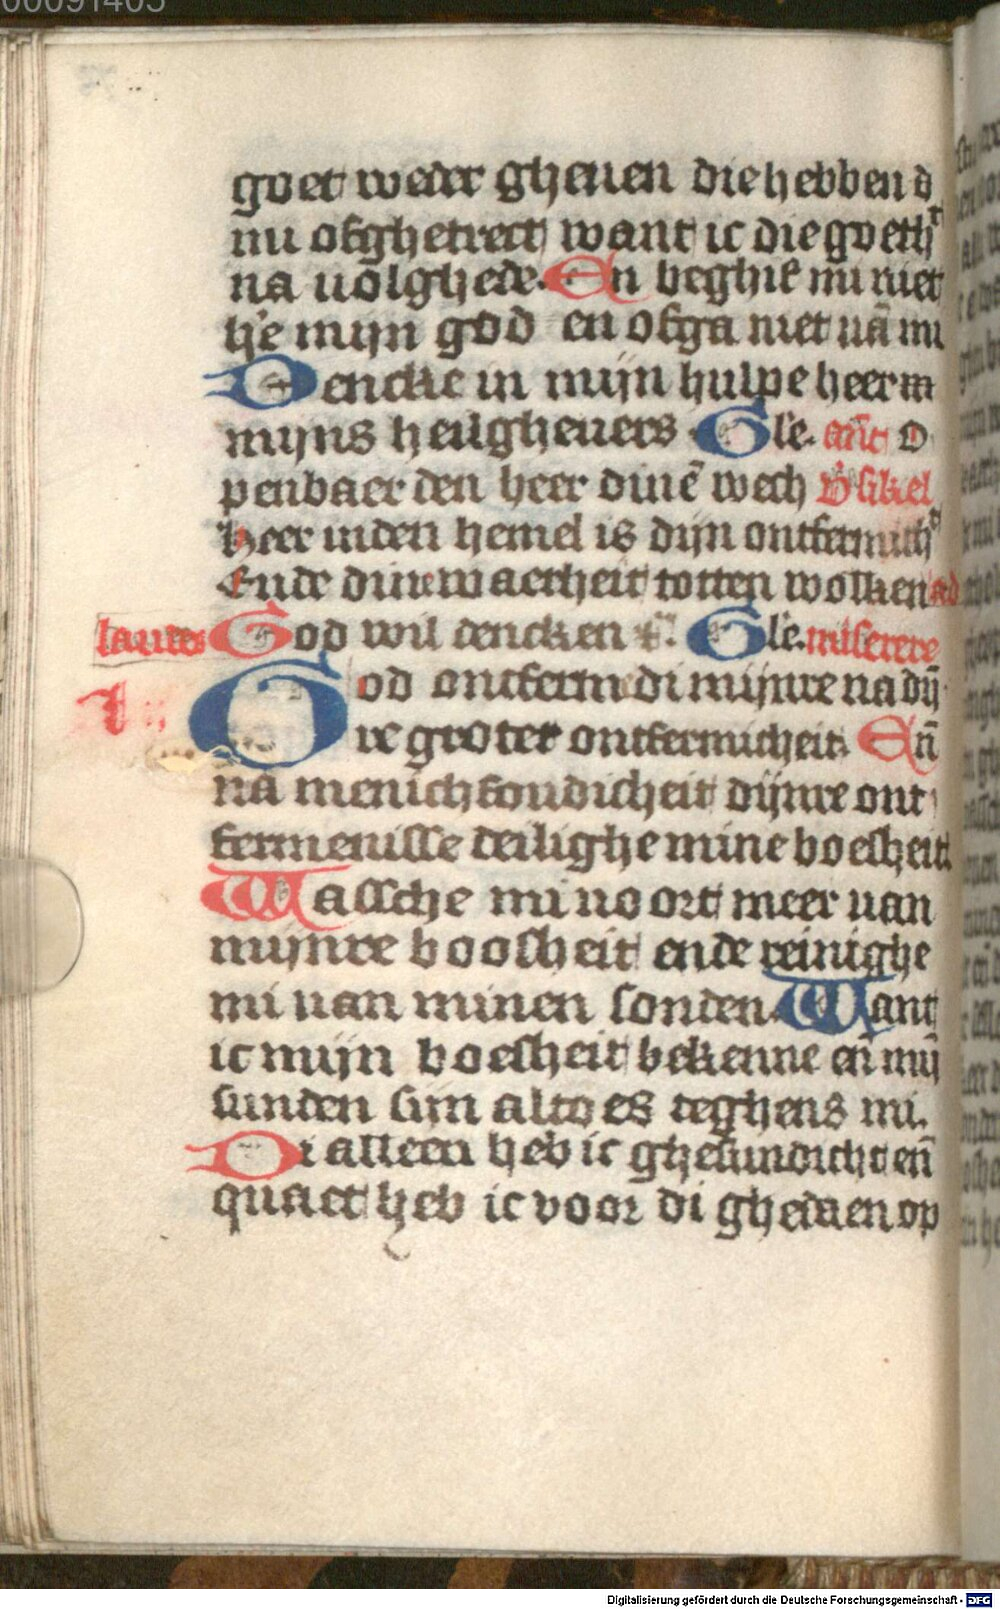 00091405
goet weder gheuen die hebben d
mi ofghetrect want ic die goeth
na uolghede. En beghif mi niet
h'e mijn god en ofga niet uā mi
Dencke in mijn hulpe heer m
mijns heilgheuers Gl'e. añt O
penbaer den heer dinē wech v'sikel
heer inden hemel is dijn ontfermich
Ende dine waerheit totten wolken ad
laudes God wil dencken Gl'e. miserere
God ontferm di mijnre na dij
nre groter ontfermicheit. Eñ
na menichfoudicheit dijnre ont
fermenisse deilighe mine boesheit
Wassche mi uoort meer uan
mijnre boosheit ende reinighe
mi uan minen sonden. Want
ic mijn boesheit bekenne eñ mij
sunden sijn altoes teghens mi.
Di alleen heb ic ghesundicht eñ
quaet heb ic voor di ghedaen op
Digitalisierung gefördert durch die Deutsche Forschungsgemeinschaft - DFG